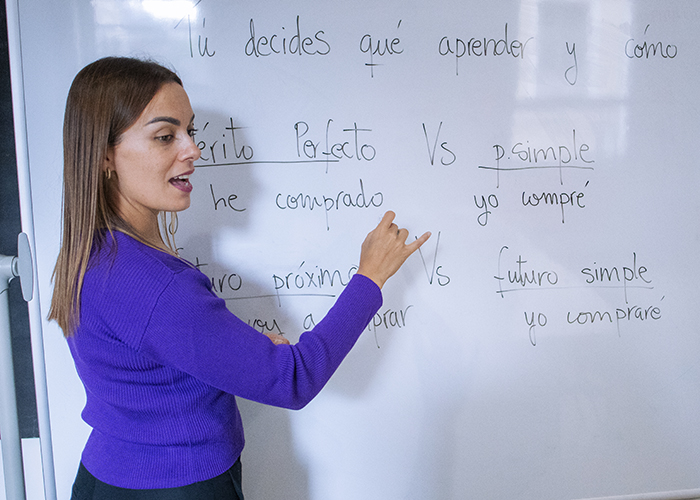 Tú decides qué aprender y cómo
érito Perfecto Vs p.simple
he comprado yo compré
uro próximo Vs futuro simple
voy a comprar yo compraré